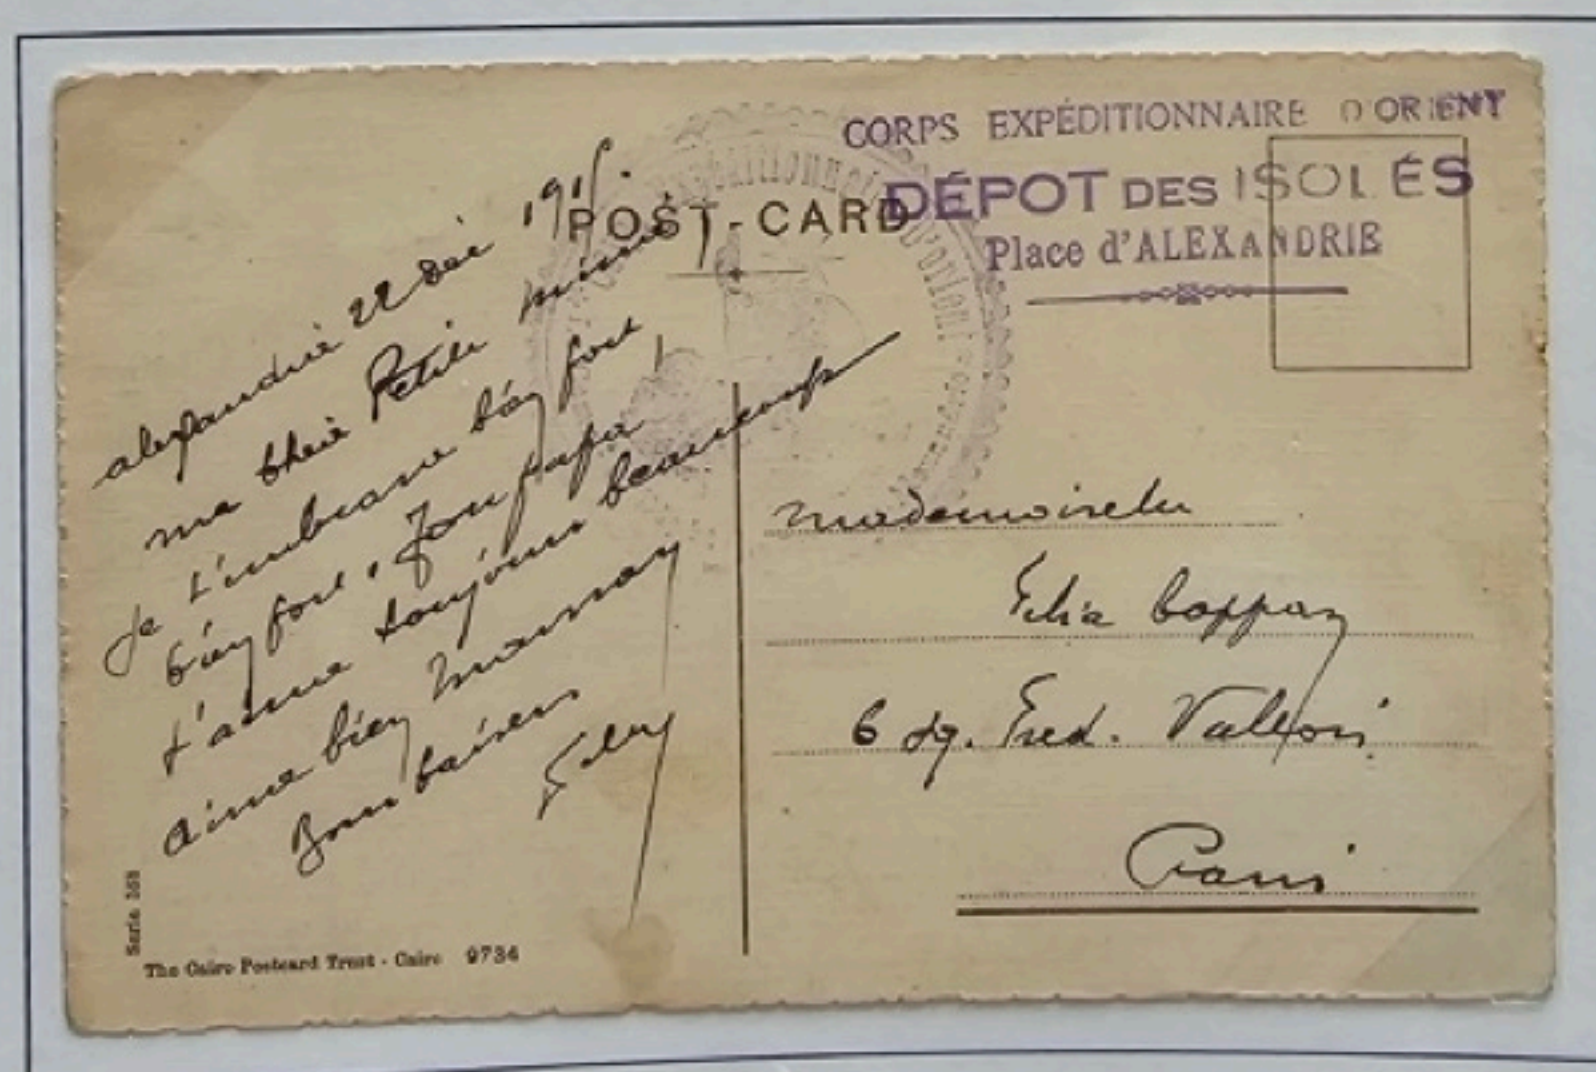 CORPS EXPÉDITIONNAIRE D'ORIENT
DÉPOT DES ISOLÉS
Place d'ALEXANDRIE
POST-CARD
Expéditionnaire d'orient
alexandrie 22 Dec 1915.
ma chérie Petite mimi
Je t'embrasse bien fort
bien fort, Ton papa
t'aime toujours beaucoup
aime bien maman
Bons baisers
mademoiselle
Coppaz
6 sq. Fred. Vallois
Paris
Serie
The Cairo Postcard Trust - Cairo 9734